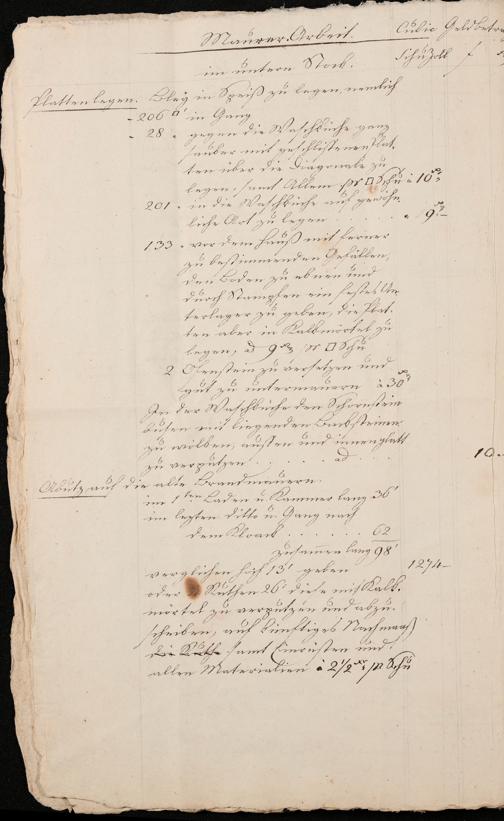 Maurer-Arbeit. Cubic Geldbetra
im untern Stock. Schu Zoll f
Plattenlegen. Bley in Speiß zu legen, nemlich
206 □' in Gang
28 " gegen die Waschküche ganz
sauber mit geschliffenen Plat-
ten über die Diagonale zu
legen, samt Allem pr □ Schu à 10 xr
201 " in die Waschküche auf gewöhn-
liche Art zu legen . . . . " 9 xr
133 " vor dem Hauß mit ferner
zu bestimmenden Gefällen,
den Boden zu ebnen und
durch Stampfen ein festes Un-
terlager zu geben, die Plat-
ten aber in Kalkmörtel zu
legen, à 9 xr pr □ Schu
2 Ofenstein zu versetzen und
gut zu untermauern à 30 xr
In der Waschküche den Schornstein
mit liegenden Backsteinen
zu wölben, aussen und innen glatt
zu verputzen . . . . . . 10.-
Abputz auf die alte Brandmauern.
im 1ten Laden u. Kammer lang 36'
im lezten ditto u. Gang nach
dem Kloack . . . . . . 62
zusammen lang 98'
verglichen hoch 13' geben 1274-
oder Ruthen 26' diese mit Kalk-
mörtel zu verputzen und abzu-
scheiben, auf künftiges Nachmaaß
die Ruthe samt Einrüsten und
allen Materialien à 2 1/2 xr pr Schu